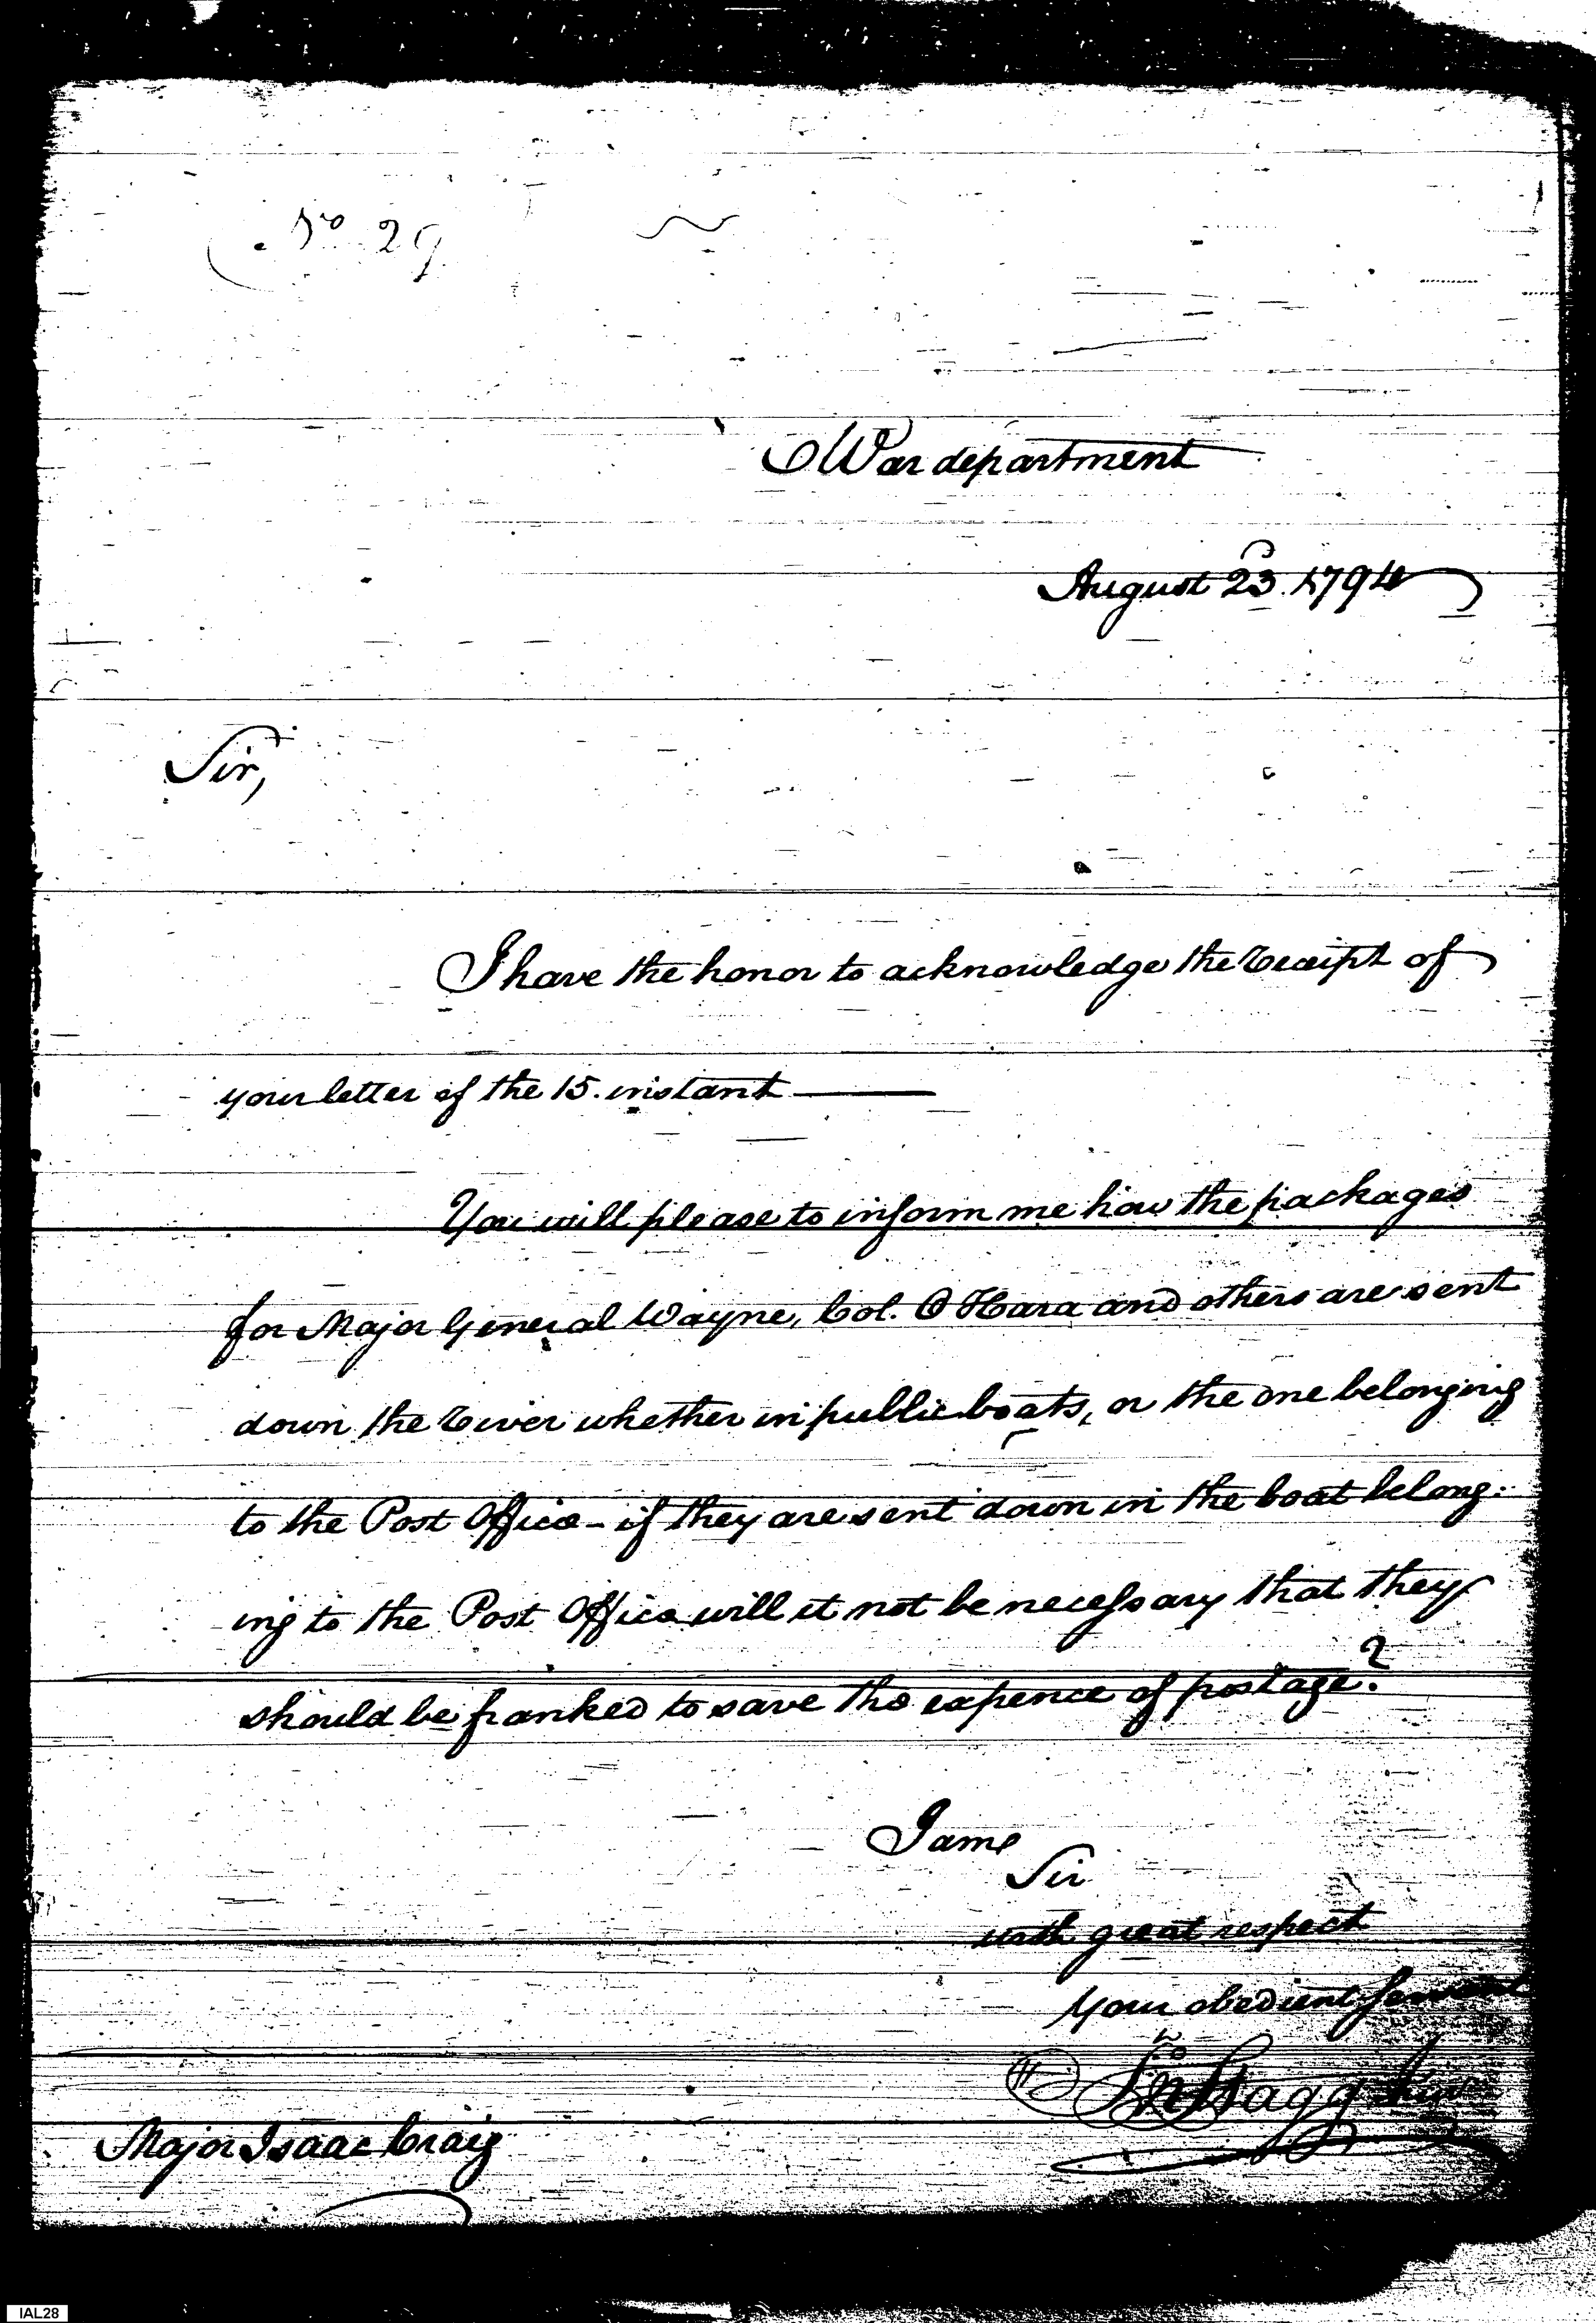 No 29
War department
August 23. 1794
Sir,
I have the honor to acknowledge the receipt of
your letter of the 15. instant
You will please to inform me how the packages
for Major General Wayne, Col. O Hara and others are sent
down the river whether in public boats, or the one belonging
to the Post Office - if they are sent down in the boat belong-
ing to the Post Office will it not be necessary that they
should be franked to save the expence of postage?
I am
Sir
with great respect
Your obedient servant
Jno Stagg Junr
Major Isaac Craig
IAL28